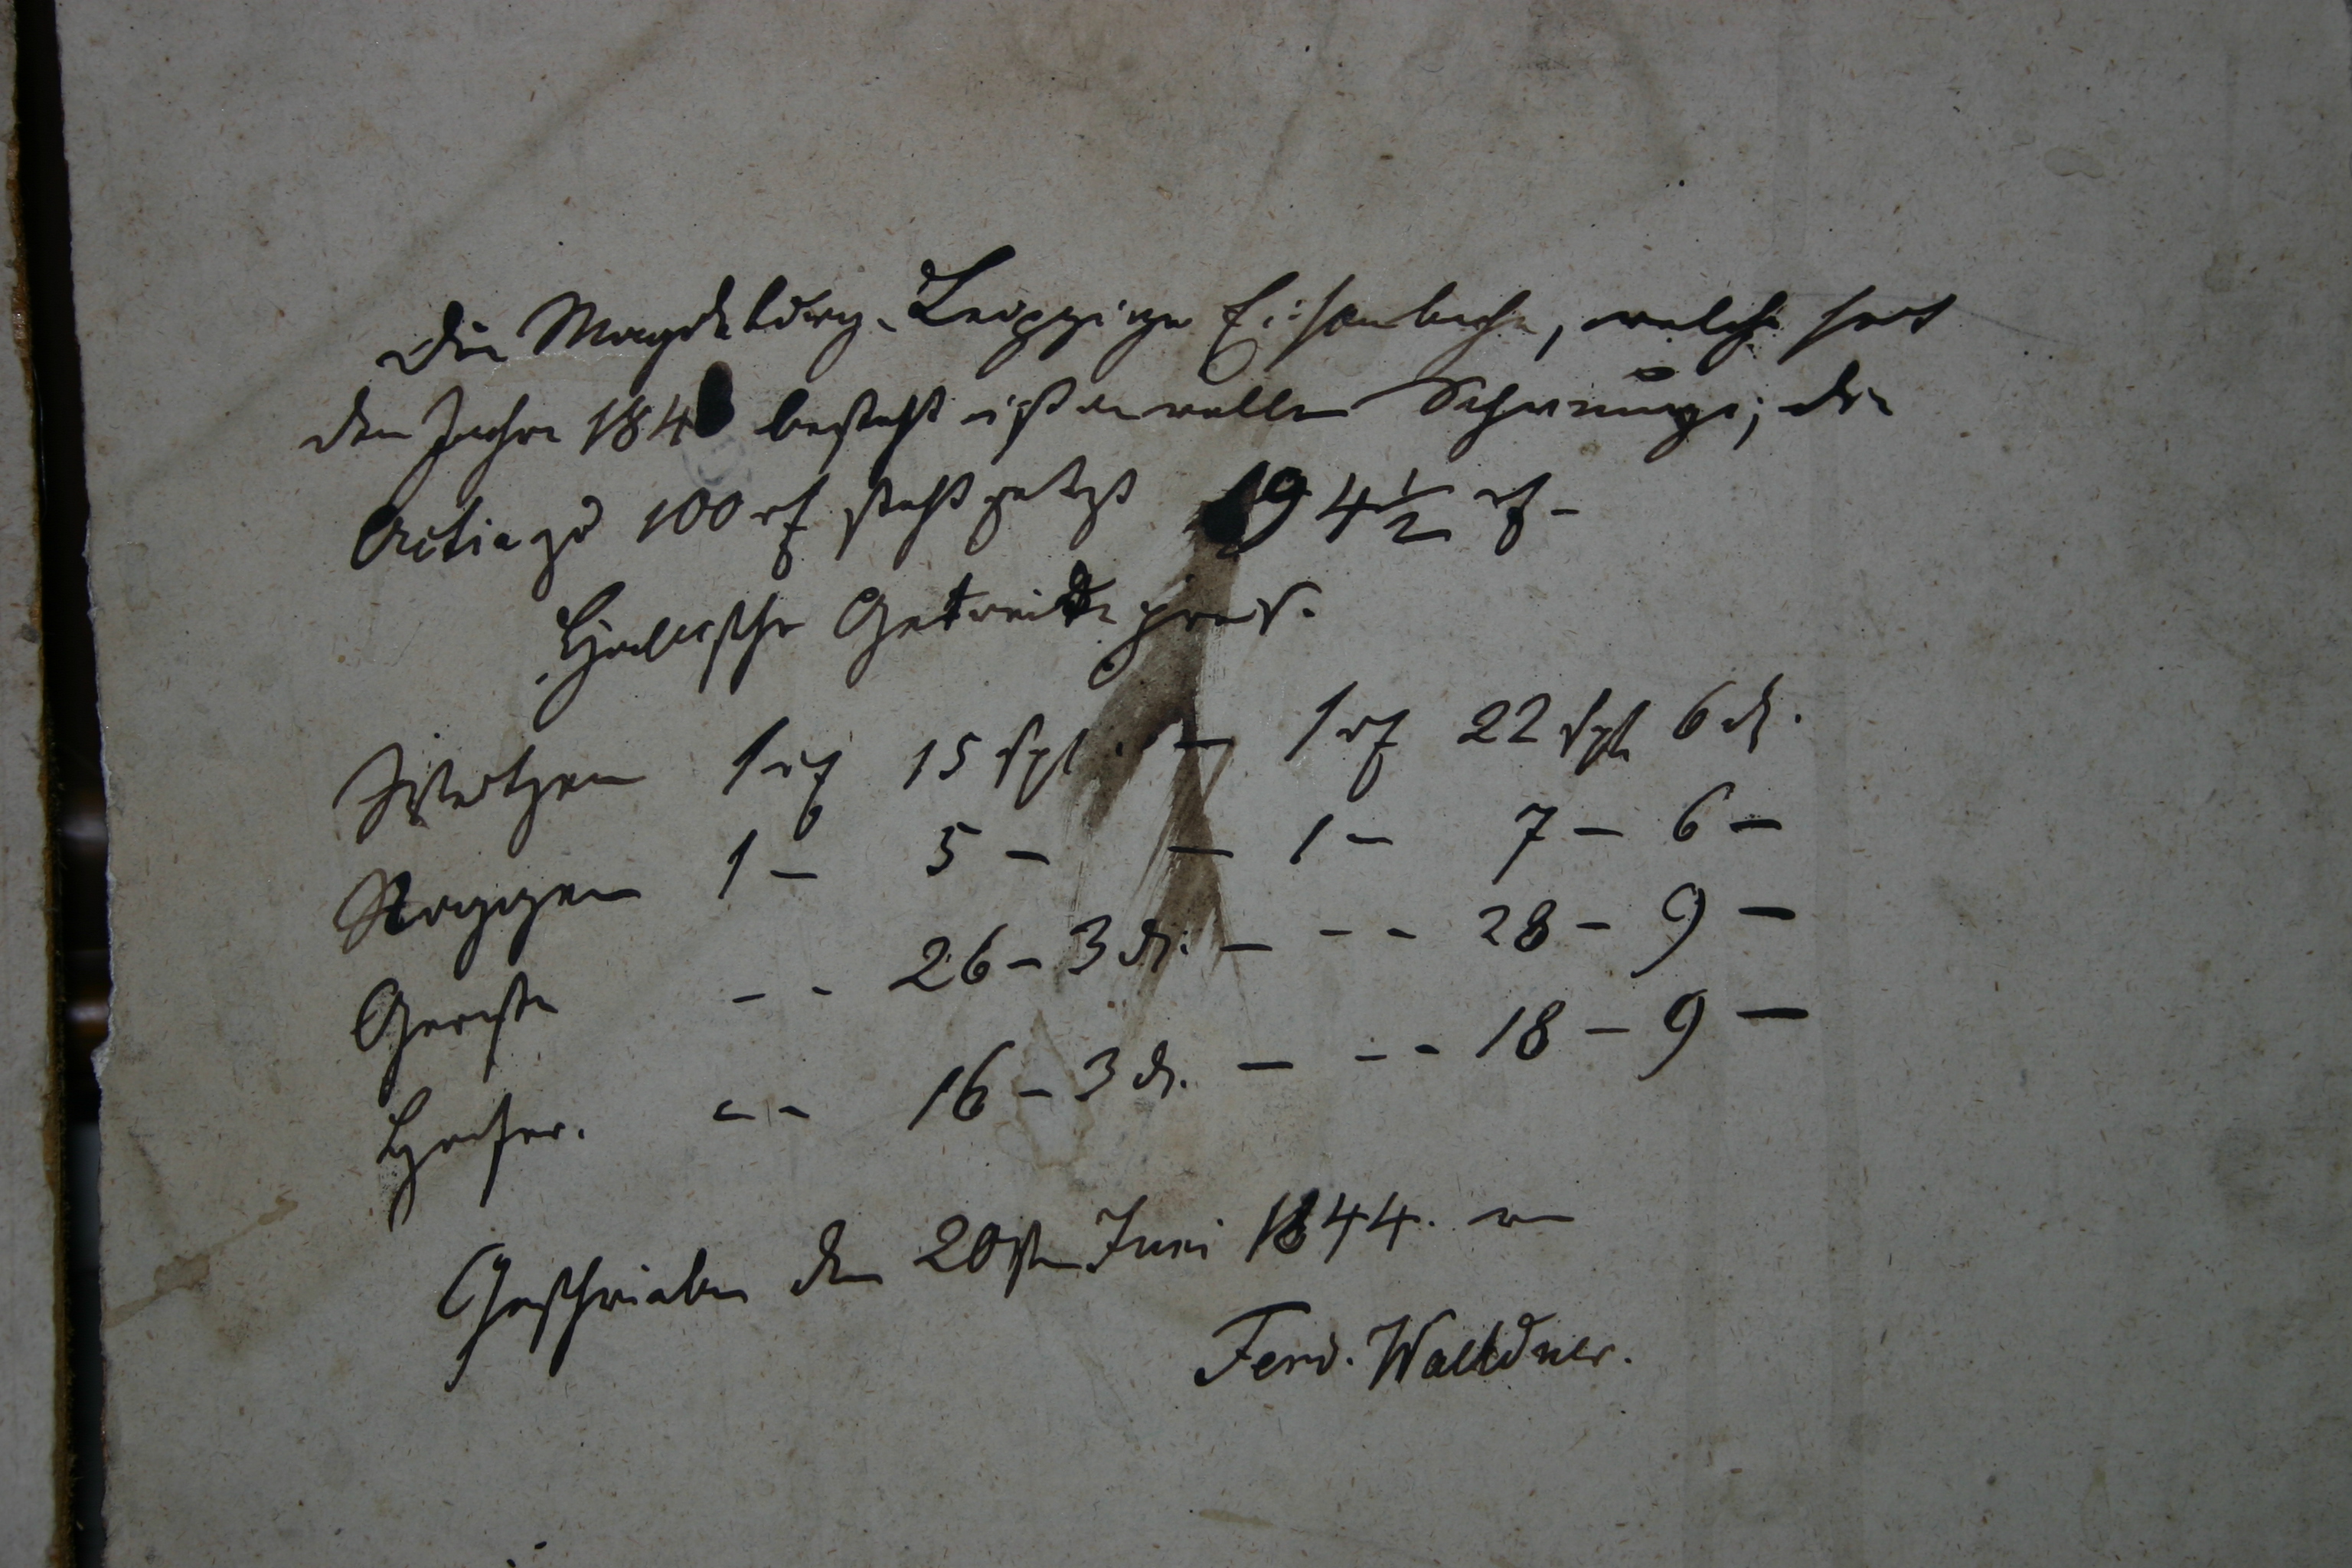 Die Magdeburg-Leipziger Eisenbahn, welche seit
dem Jahre 184 besteht ist in vollem Schwunge; die
Actie zu 100 rf steht jetzt 194½ rf-
Hallische Getreide preis.
Weitzen 1 rf 15 sgl. — 1 rf 22 sgl 6 d.
Roggen 1 - 5 - — 1 - 7 - 6 -
Gerste - - 26 - 3 d. — - - 28 - 9 -
Hafer. - - 16 - 3 d. — - - 18 - 9 -
Geschrieben den 20sten Juni 1844. v
Ferd. Waldner.